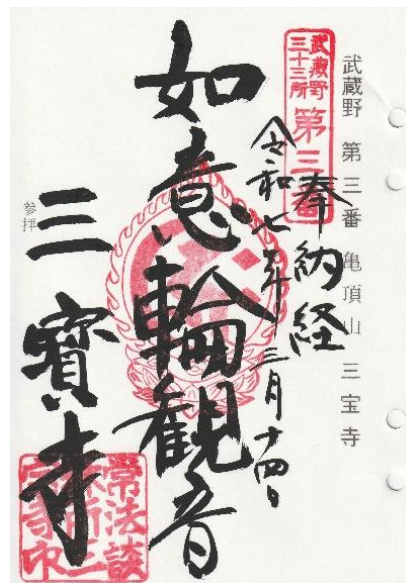 武蔵野 第三番 亀頂山 三宝寺
武蔵野
三十三所
第三番
奉納経
令和七年三月十四日
如意輪観音
三寳寺
参拝